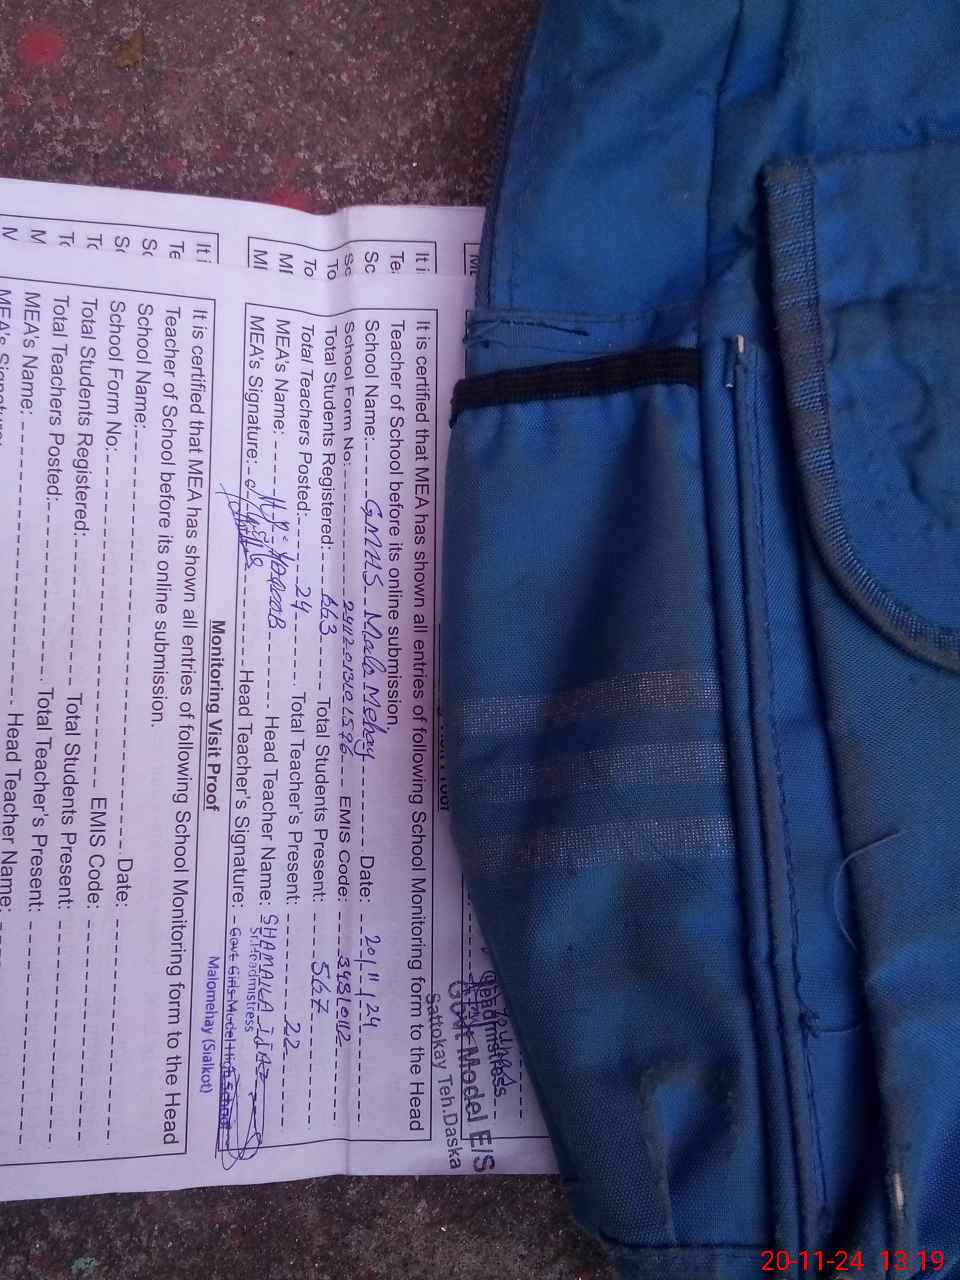 It i
Te
Sc
Sc
To
To
MI
MI
It i
Te
Sc
Sc
To
To
M
M
Headmistress
Govt Model E/S
Sattokay Teh.Daska
It is certified that MEA has shown all entries of following School Monitoring form to the Head
Teacher of School before its online submission.
School Name: GMHS Malo Mehay Date: 20/11/24
School Form No: EMIS Code:
Total Students Registered: 663 Total Students Present: 567
Total Teachers Posted: 24 Total Teacher's Present: 22
MEA's Name: Head Teacher Name: SHAMAILA IJAZ
MEA's Signature: Head Teacher's Signature:
Sr.Headmistress
Govt Girls Model High School
Malomehay (Sialkot)
Monitoring Visit Proof
It is certified that MEA has shown all entries of following School Monitoring form to the Head
Teacher of School before its online submission.
School Name: Date:
School Form No: EMIS Code:
Total Students Registered: Total Students Present:
Total Teachers Posted: Total Teacher's Present:
MEA's Name: Head Teacher Name:
MEA's Signature:
20-11-24 13:19